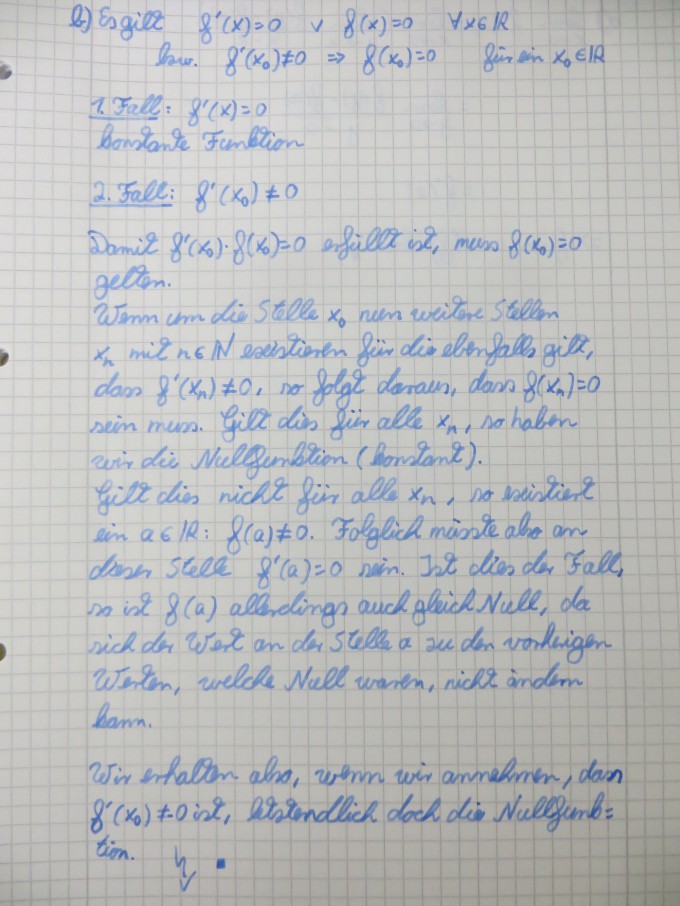 b) Es gilt f'(x)=0 ∨ f(x)=0 ∀x∈ℝ
bzw. f'(x₀)≠0 ⇒ f(x₀)=0 für ein x₀∈ℝ
1. Fall: f'(x)=0
konstante Funktion
2. Fall: f'(x₀)≠0
Damit f'(x₀)·f(x₀)=0 erfüllt ist, muss f(x₀)=0
gelten.
Wenn um die Stelle x₀ nun weitere Stellen
xₙ mit n∈ℕ existieren für die ebenfalls gilt,
dass f'(xₙ)≠0, so folgt daraus, dass f(xₙ)=0
sein muss. Gilt dies für alle xₙ, so haben
wir die Nullfunktion (konstant).
Gilt dies nicht für alle xₙ, so existiert
ein a∈ℝ: f(a)≠0. Folglich müsste also an
dieser Stelle f'(a)=0 sein. Ist dies der Fall,
so ist f(a) allerdings auch gleich Null, da
sich der Wert an der Stelle a zu den vorherigen
Werten, welche Null waren, nicht ändern
kann.
Wir erhalten also, wenn wir annehmen, dass
f'(x₀)≠0 ist, letztendlich doch die Nullfunk=
tion. ↯ ▪